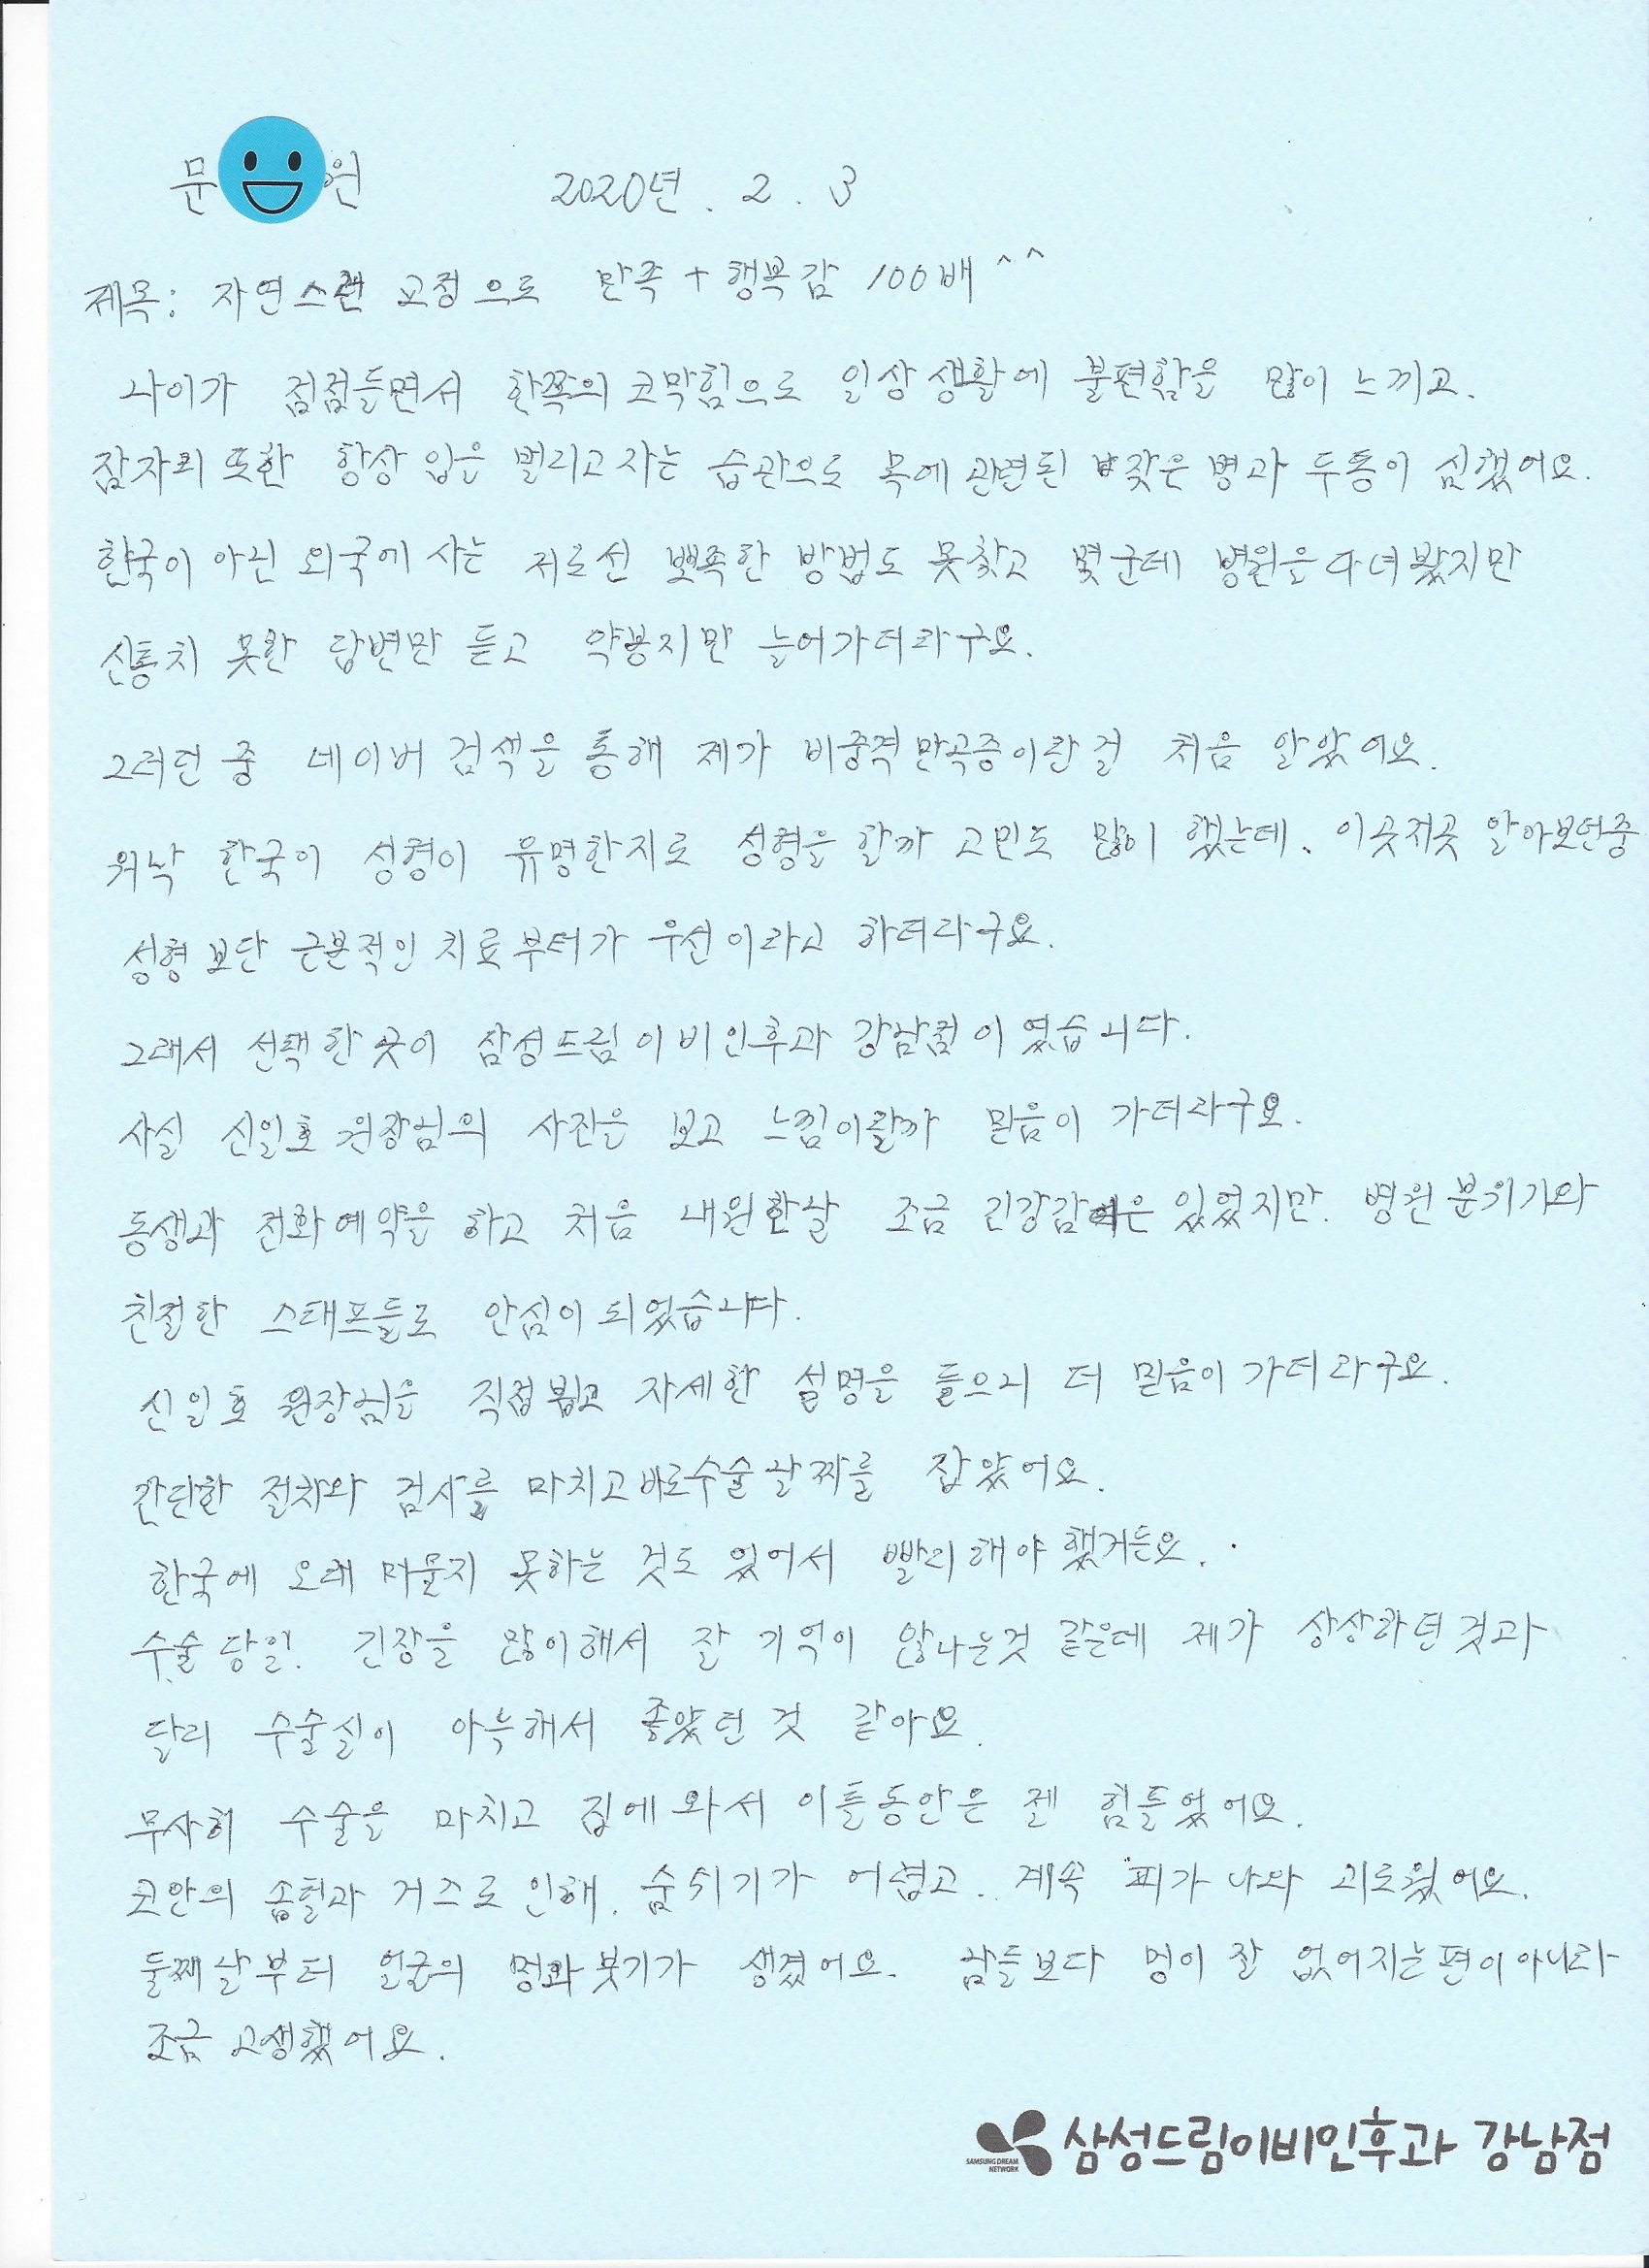 문 원 2020년. 2. 3
제목: 자연스런 교정으로 만족 + 행복감 100배^^
나이가 점점들면서 한쪽의 코막힘으로 일상생활에 불편함을 많이 느끼고.
잠자리 또한 항상 입을 벌리고 자는 습관으로 목에 관련된 잦은 병과 두통이 심했어요.
한국이 아닌 외국에 사는 저로선 뾰족한 방법도 못찾고 몇군데 병원을 다녀봤지만
신통치 못한 답변만 듣고 약봉지만 늘어가더라구요.
그러던 중 네이버 검색을 통해 제가 비중격만곡증이란걸 처음 알았어요.
워낙 한국이 성형이 유명한지로 성형을 할까 고민도 많이 했는데, 이곳저곳 알아보던중
성형보단 근본적인 치료부터가 우선이라고 하더라구요.
그래서 선택한 곳이 삼성드림이비인후과 강남점이였습니다.
사실 신일호 원장님의 사진을 보고 느낌이랄까 믿음이 가더라구요.
동생과 전화예약을 하고 처음 내원한날 조금 긴강감은 있었지만. 병원분위기와
친절한 스태프들로 안심이 되었습니다.
신일호 원장님을 직접뵙고 자세한 설명을 들으니 더 믿음이 가더라구요.
간단한 절차와 검사를 마치고바로수술날짜를 잡았어요.
한국에 오래 머물지 못하는 것도 있어서 빨리해야했거든요.
수술당일. 긴장을 많이해서 잘 기억이 않나는것 같은데 제가 상상하던것과
달리 수술실이 아늑해서 좋았던 것 같아요.
무사히 수술을 마치고 집에 와서 이틀동안은 젤 힘들었어요.
코안의 솜털과 거즈로 인해. 숨쉬기가 어렵고.. 계속 피가 나와 괴로웠어요.
둘째날부터 얼굴의 멍과 붓기가 생겼어요. 남들보다 멍이 잘 없어지는편이아니라
조금 고생했어요.
SAMSUNG DREAM NETWORK 삼성드림이비인후과 강남점